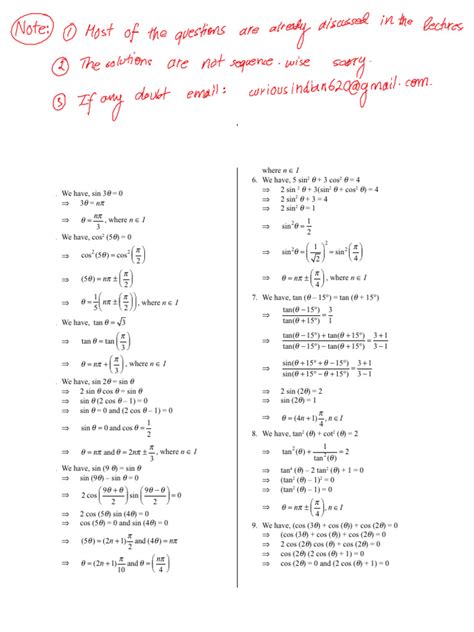 Note: ① Most of the questions are already discussed in the lectures
② The solutions are not sequence-wise sorry.
③ If any doubt email: curiousindian620@gmail.com.
. We have, sin 3θ = 0
⇒ 3θ = nπ
⇒ θ = nπ/3, where n ∈ I
. We have, cos² (5θ) = 0
⇒ cos² (5θ) = cos² (π/2)
⇒ (5θ) = nπ ± (π/2)
⇒ θ = 1/5 (nπ ± (π/2)), where n ∈ I
We have, tan θ = √3
⇒ tan θ = tan (π/3)
⇒ θ = nπ + (π/3), where n ∈ I
. We have, sin 2θ = sin θ
⇒ 2 sin θ cos θ = sin θ
⇒ sin θ (2 cos θ – 1) = 0
⇒ sin θ = 0 and (2 cos θ – 1) = 0
⇒ sin θ = 0 and cos θ = 1/2
⇒ θ = nπ and θ = 2nπ ± π/3, where n ∈ I
. We have, sin (9 θ) = sin θ
⇒ sin (9θ) – sin θ = 0
⇒ 2 cos ((9θ + θ)/2) sin ((9θ – θ)/2) = 0
⇒ 2 cos (5θ) sin (4θ) = 0
⇒ cos (5θ) = 0 and sin (4θ) = 0
⇒ (5θ) = (2n + 1) π/2 and (4θ) = nπ
⇒ θ = (2n + 1) π/10 and θ = (nπ/4)
where n ∈ I
6. We have, 5 sin² θ + 3 cos² θ = 4
⇒ 2 sin² θ + 3(sin² θ + cos² θ) = 4
⇒ 2 sin² θ + 3 = 4
⇒ 2 sin² θ = 1
⇒ sin² θ = 1/2
⇒ sin² θ = (1/√2)² = sin² (π/4)
⇒ θ = nπ ± (π/4), where n ∈ I
7. We have, tan (θ – 15°) = tan (θ + 15°)
⇒ tan(θ – 15°)/tan(θ + 15°) = 3/1
⇒ (tan(θ – 15°) + tan(θ + 15°))/(tan(θ – 15°) – tan(θ + 15°)) = (3 + 1)/(3 – 1)
⇒ sin(θ + 15° + θ – 15°)/sin(θ + 15° – θ + 15°) = (3 + 1)/(3 – 1)
⇒ 2 sin (2θ) = 2
⇒ sin (2θ) = 1
⇒ θ = (4n + 1) π/4, n ∈ I
8. We have, tan² (θ) + cot² (θ) = 2
⇒ tan² (θ) + 1/tan² (θ) = 2
⇒ tan⁴ (θ) – 2 tan² (θ) + 1 = 0
⇒ (tan² (θ) – 1)² = 0
⇒ (tan² (θ) – 1) = 0
⇒ θ = nπ ± (π/4), n ∈ I
9. We have, (cos (3θ) + cos (θ)) + cos (2θ) = 0
⇒ (cos (3θ) + cos (θ)) + cos (2θ) = 0
⇒ 2 cos (2θ) cos (θ) + cos (2θ) = 0
⇒ cos (2θ) (2 cos (θ) + 1) = 0
⇒ cos (2θ) = 0 and (2 cos (θ) + 1) = 0